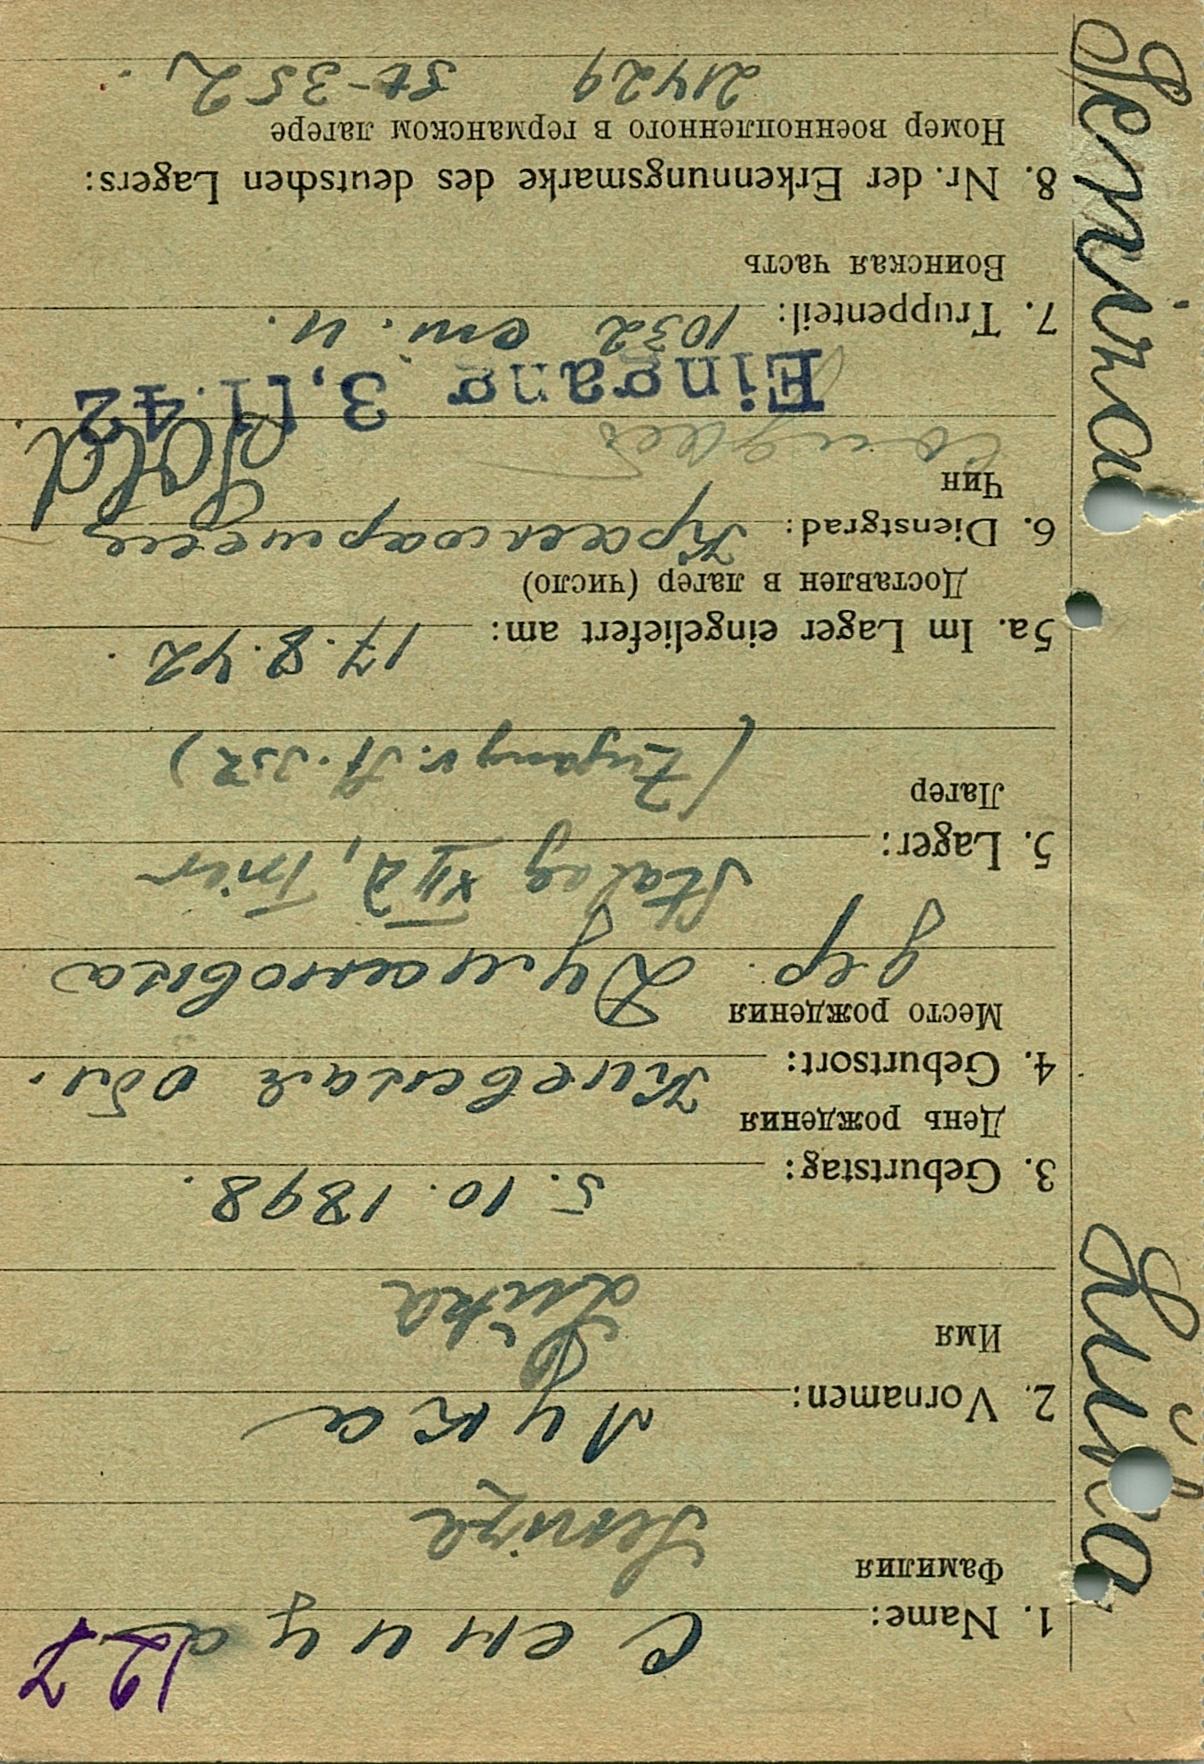 127
1. Name: Семица
Фамилия
Semiza
2. Vornamen: Лука
Имя
Luka
3. Geburtstag: 5. 10. 1898.
День рождения
4. Geburtsort: Киевская обл.
Место рождения
дер. Думановка
5. Lager: Stalag XII D, Trier
Лагер
(Zugang v. St. 352)
5a. Im Lager eingeliefert am: 17. 8. 42.
Доставлен в лагер (число)
6. Dienstgrad: Красноармеец
Чин
Sold.
Eingang 3. 11. 42
7. Truppenteil: 1032
Воинская часть
8. Nr. der Erkennungsmarke des deutschen Lagers:
Номер военнопленного в германском лагере
21429 St-352.
Semiza Luka